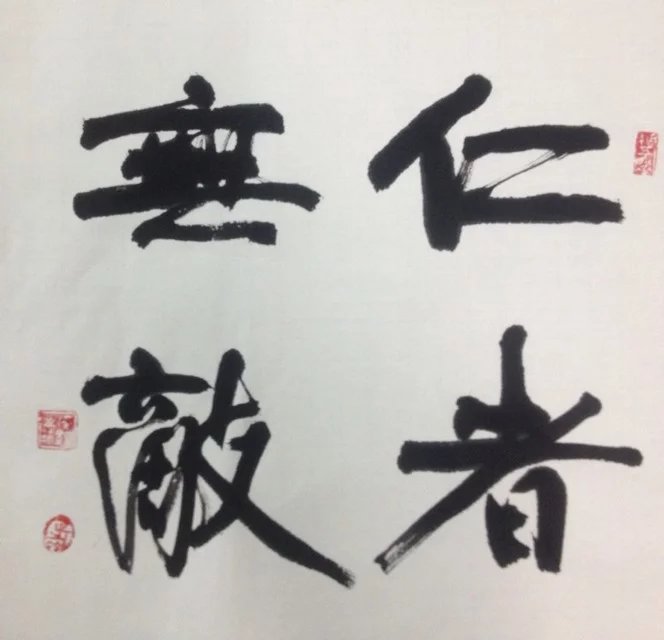 仁者
無敵